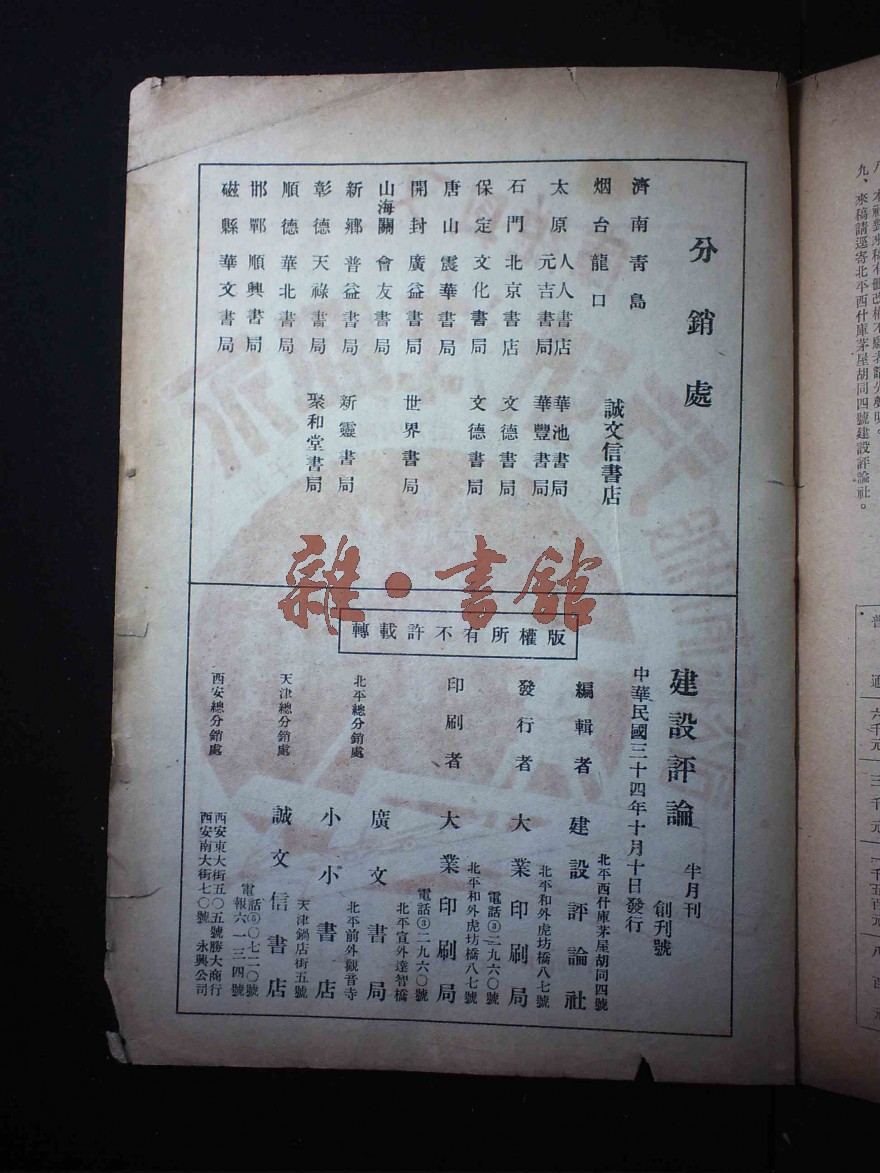 分銷處
濟南青島
烟台龍口
誠文信書店
太原 人人書店 華池書局
元吉書局 華豐書局
石門 北京書店 文德書局
保定 文化書局 文德書局
唐山 震華書局
開封 廣益書局 世界書局
山海關 會友書局
新鄉 普益書局 新靈書局
彰德 天祿書局 聚和堂書局
順德 華北書局
邯鄲 順興書局
磁縣 華文書局
雜·書館
版權所有不許載轉
建設評論 半月刊
創刊號
中華民國三十四年十月十日發行
編輯者 建設評論社
北平西什庫茅屋胡同四號
發行者 大業印刷局
北平和外虎坊橋八七號
電話③二九六〇號
印刷者 大業印刷局
北平和外虎坊橋八七號
電話③二九六〇號
北平總分銷處
廣文書局
北平宣外達智橋
小小書店
北平前外觀音寺
天津總分銷處
誠文信書店
天津鍋店街五號
電話⑤〇七二〇號
電報六一三四號
西安總分銷處
西安東大街五〇五號勝大商行
西安南大街七〇號 永興公司
九、來稿請逕寄北平西什庫茅屋胡同四號建設評論社。
普通
六千元
三千元
一千五百元
八百元